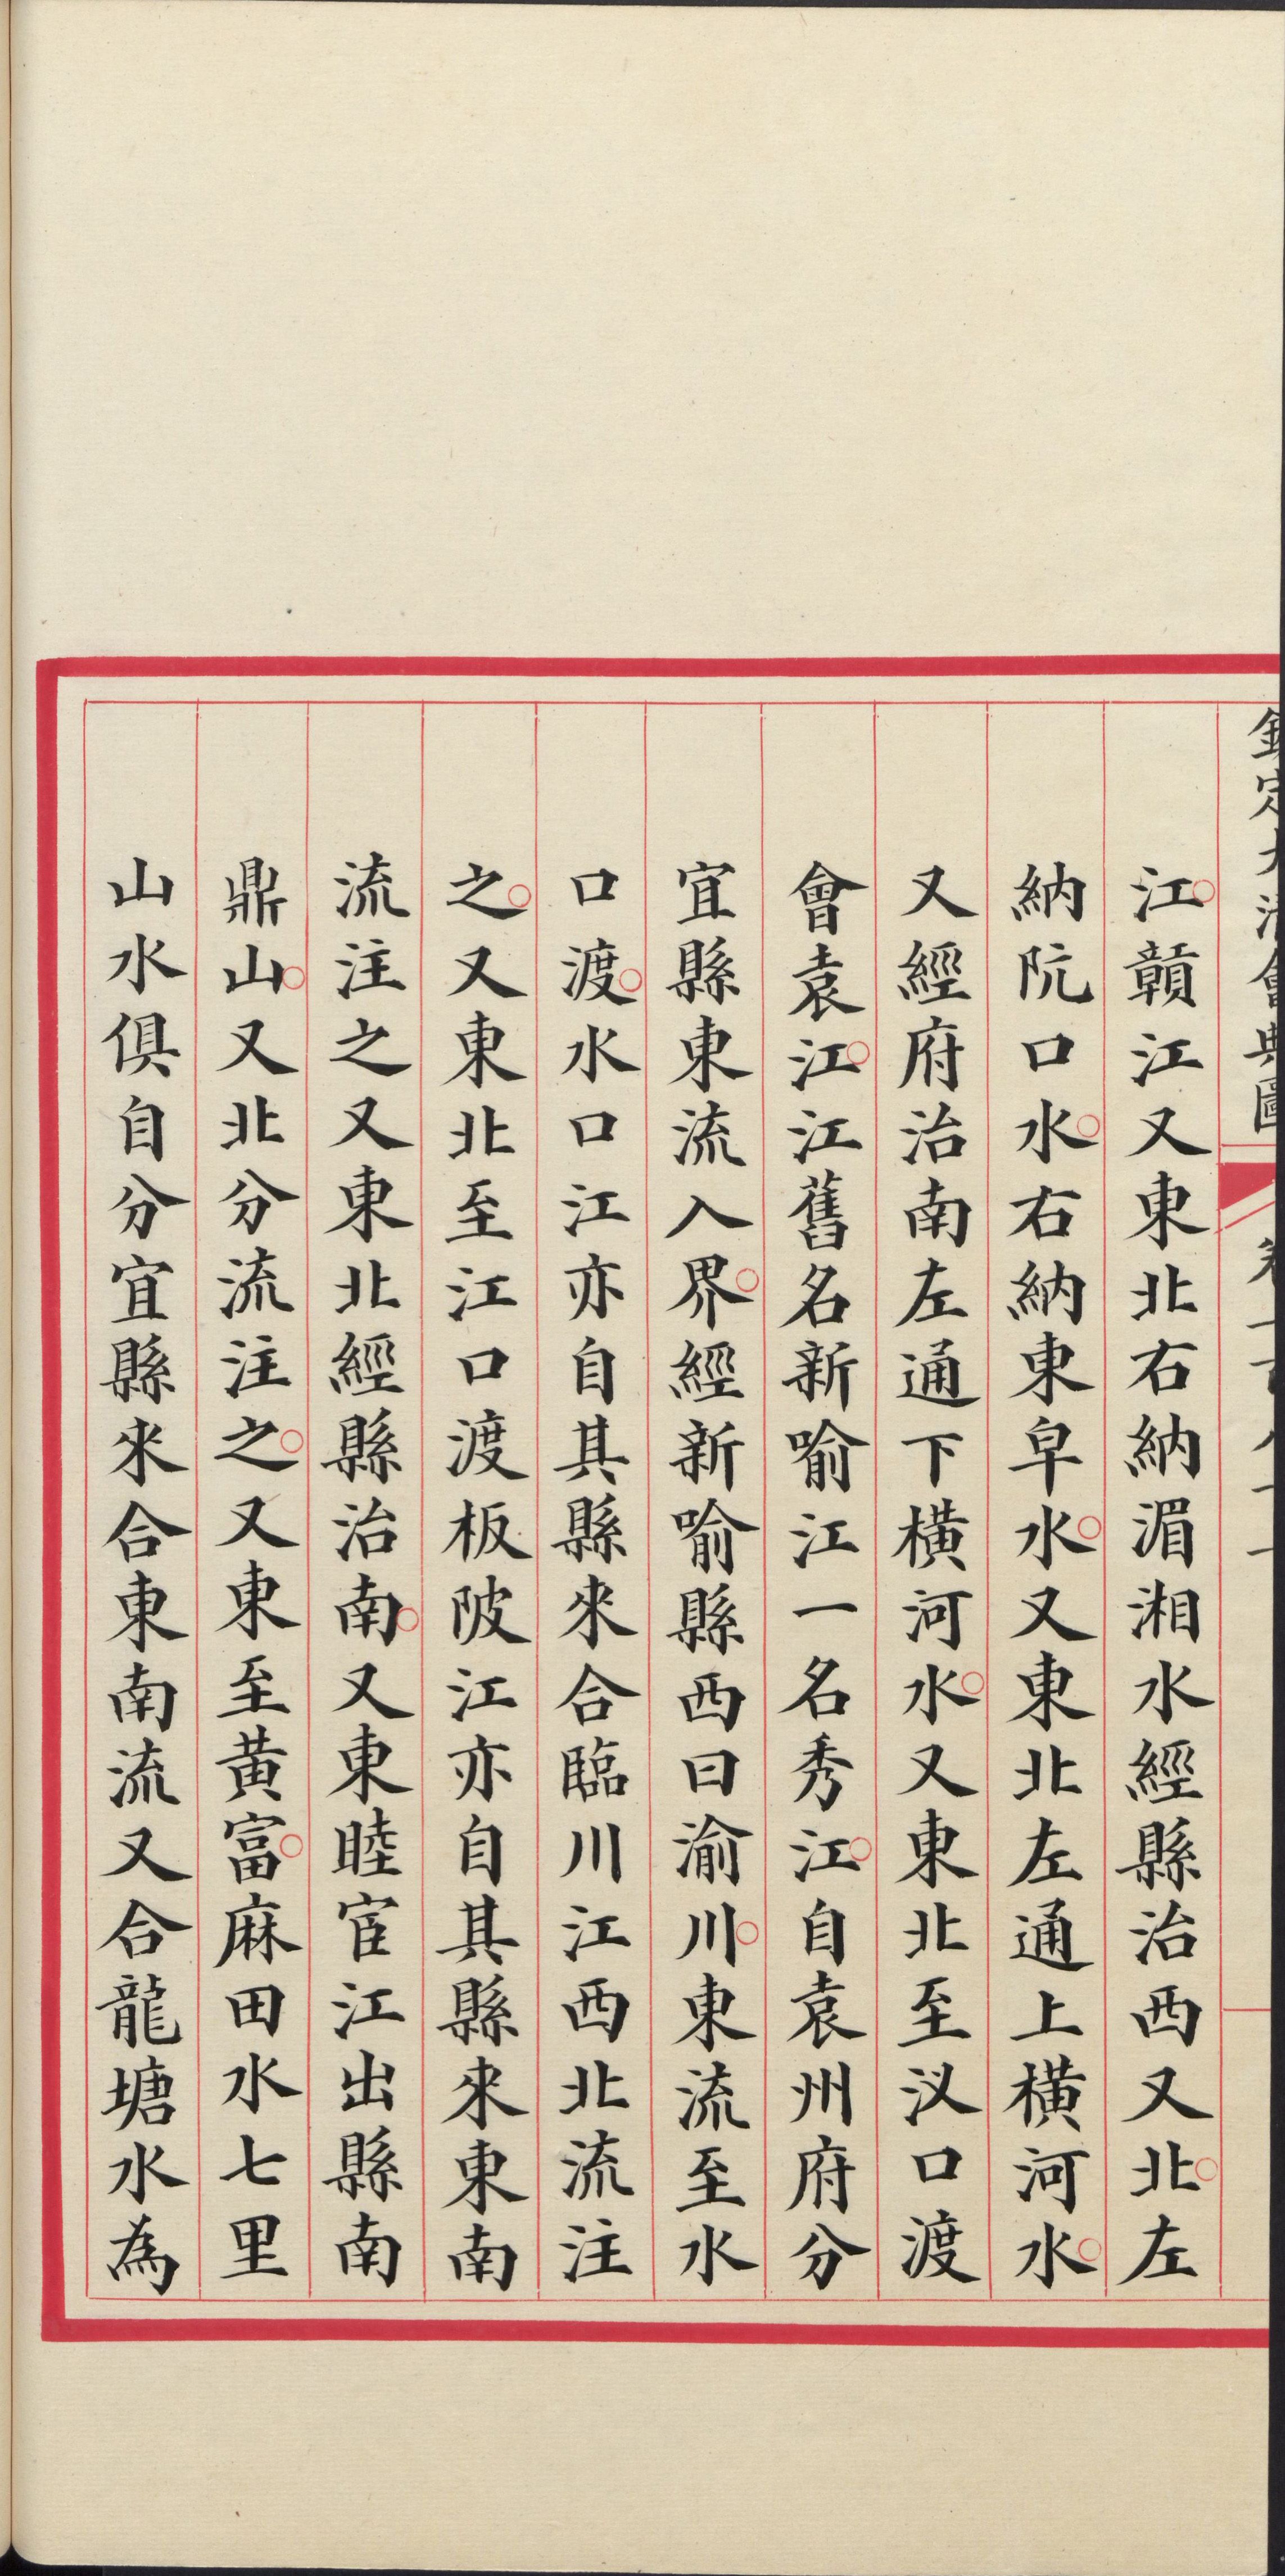 江贛江又東北右納湄湘水經縣治西又北左
納阮口水右納東皁水又東北左通上橫河水
又經府治南左通下橫河水又東北至汊口渡
會袁江江舊名新喻江一名秀江自袁州府分
宜縣東流入界經新喻縣西曰渝川東流至水
口渡水口江亦自其縣來合臨川江西北流注
之又東北至江口渡板陂江亦自其縣來東南
流注之又東北經縣治南又東睦宦江出縣南
鼎山又北分流注之又東至黃富麻田水七里
山水俱自分宜縣來合東南流又合龍塘水為